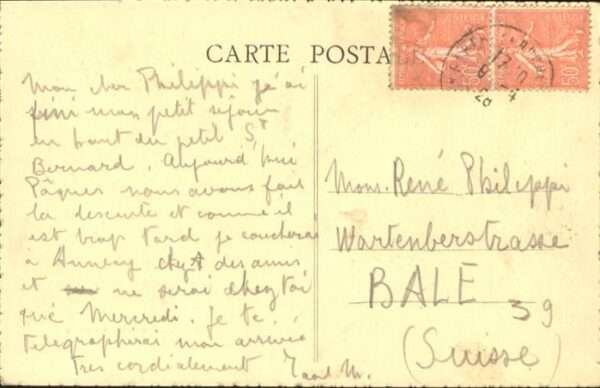 CARTE POSTA
Mon cher Philippi j'ai
fini mon petit séjour
en haut du petit St
Bernard. Aujourd'hui
Pâques nous avons fait
la descente et comme il
est trop tard je coucherai
à Annecy chez des amis
et ne serai chez toi
que Mercredi. Je te
télégraphirai mon arrivée
Très cordialement
M.
Mons. René Philippi
Wartenberstrasse
BALE 39
(Suisse)
50
50